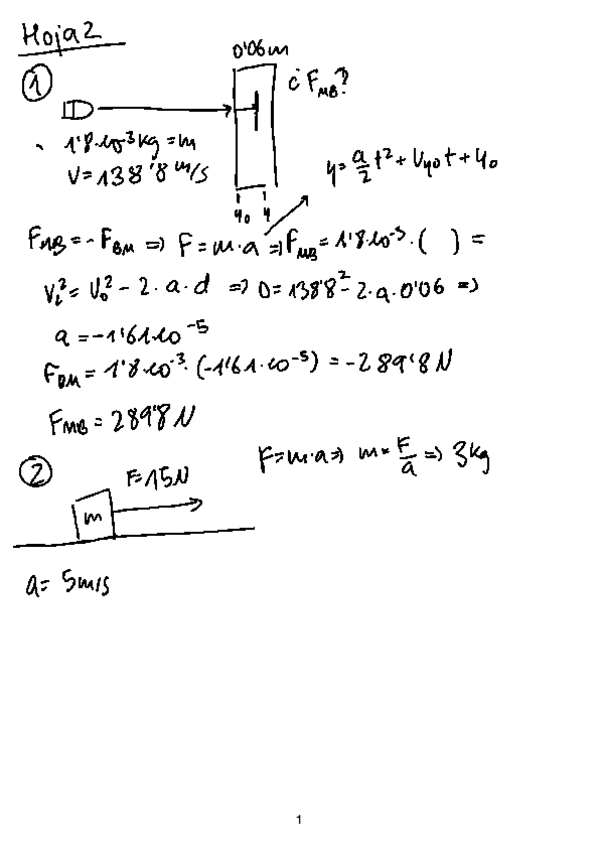 Hoja 2
① 0'06 m
¿F_MB?
1'8·10⁻³ kg = m
V = 138'8 m/s
y₀ y
y = a/2 t² + V_y0 t + y₀
F_MB = -F_BM => F = m·a => F_MB = 1'8·10⁻³·( ) =
V_L² = V₀² - 2·a·d => 0 = 138'8² - 2·a·0'06 =>
a = -1'61·10⁻⁵
F_BM = 1'8·10⁻³·(-1'61·10⁻⁵) = -289'8 N
F_MB = 289'8 N
② F = 15 N
m
F = m·a => m = F/a => 3 kg
a = 5 m/s
1